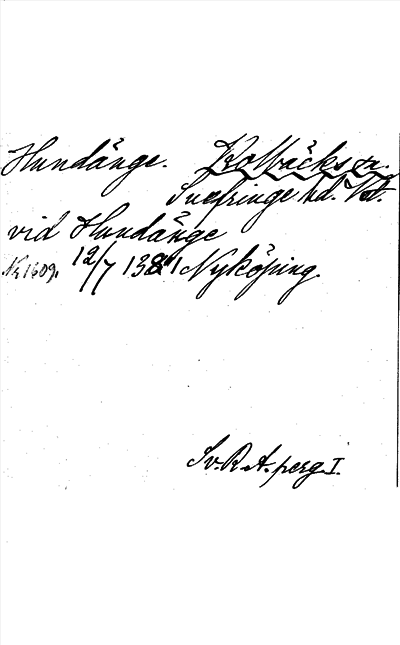 Hundänge. Kolbäcks sn.
Snefringe hd. Vstm.
vid Hundänge
Nr 1609. 12/7 1381 Nyköping
Sv. R. A. perg. I.